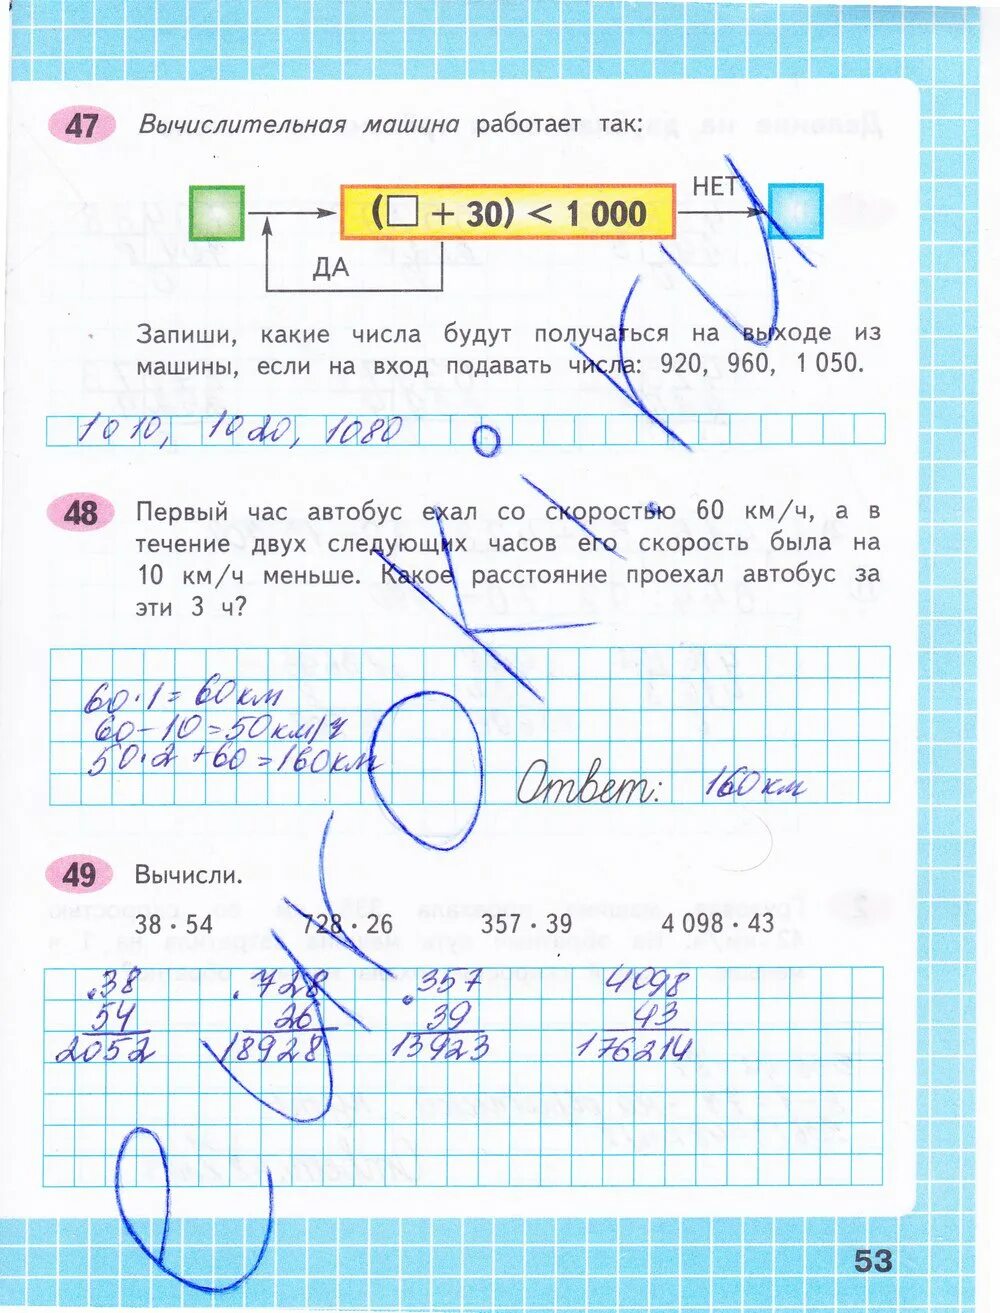 47 Вычислительная машина работает так:
(□ + 30) < 1 000
НЕТ
ДА
Запиши, какие числа будут получаться на выходе из
машины, если на вход подавать числа: 920, 960, 1 050.
1010, 1020, 1080
48 Первый час автобус ехал со скоростью 60 км/ч, а в
течение двух следующих часов его скорость была на
10 км/ч меньше. Какое расстояние проехал автобус за
эти 3 ч?
60·1=60км
60-10=50км/ч
50·2+60=160км
Ответ: 160км
49 Вычисли.
38 · 54 728 · 26 357 · 39 4 098 · 43
.38 .728 .357 4098
54 26 39 43
2052 18928 13923 176214
53